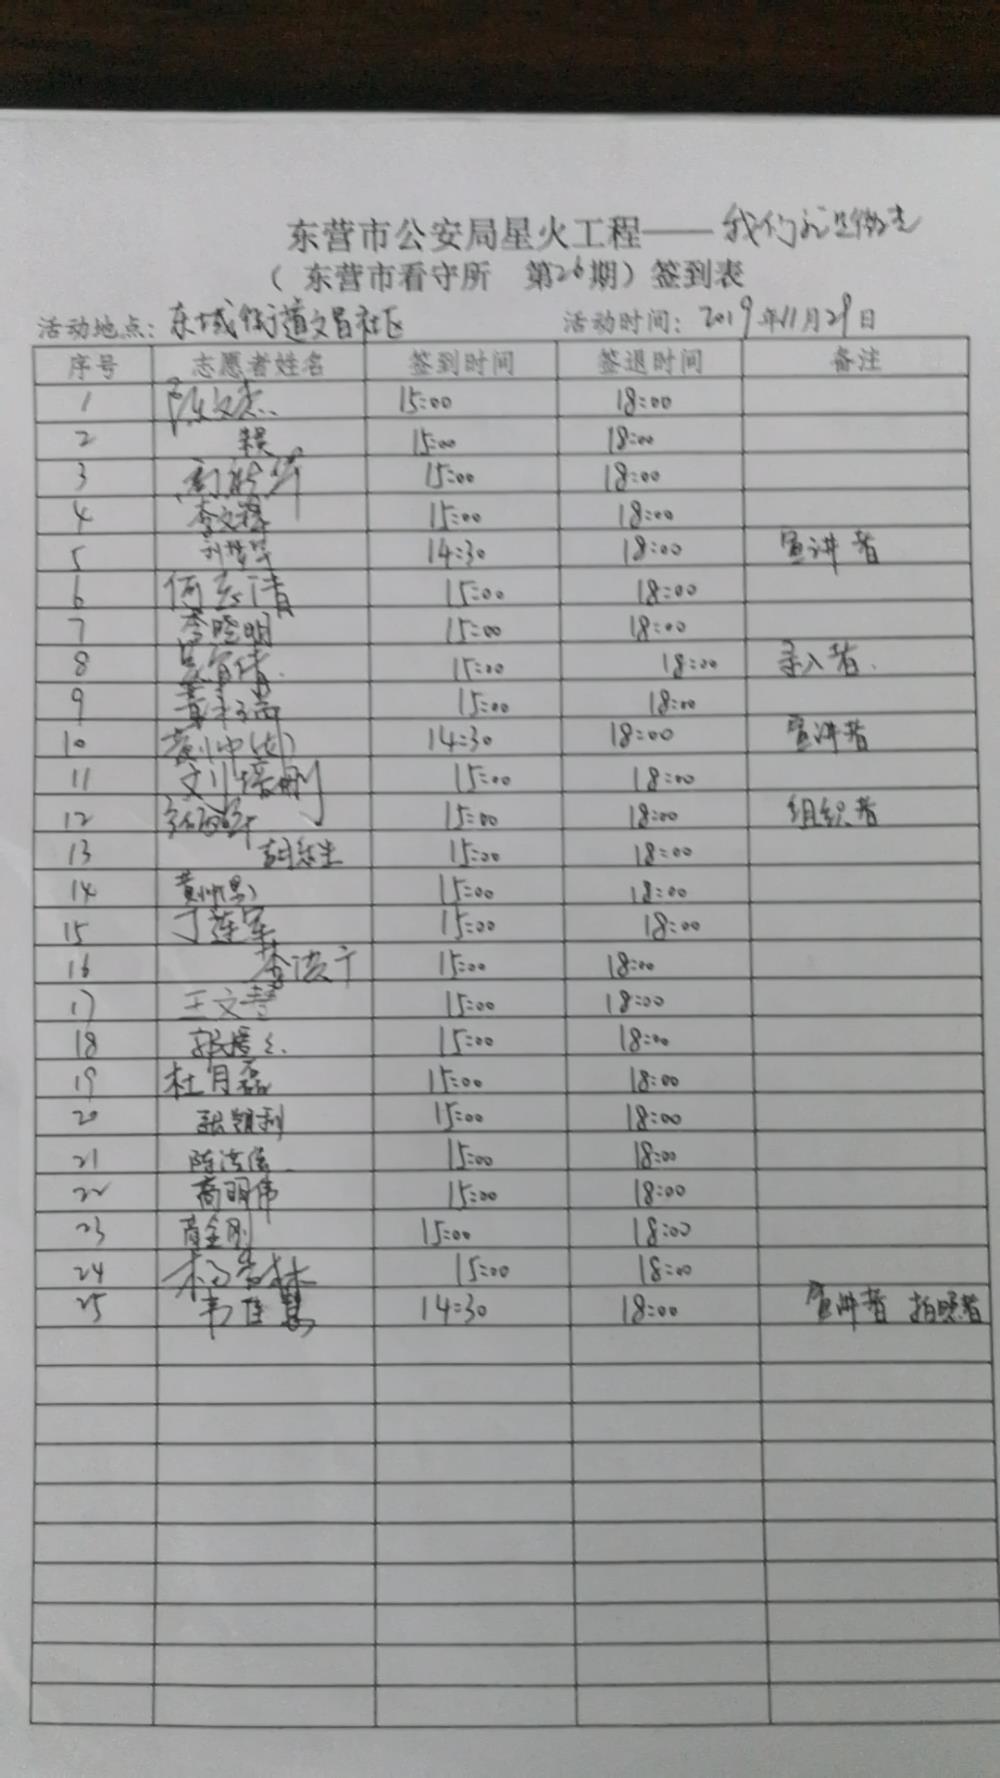 东营市公安局星火工程——我们在
(东营市看守所 第26期)签到表
活动地点: 东城街道文昌社区 活动时间: 2019年11月29日
序号 志愿者姓名 签到时间 签退时间 备注
1 陈文杰 15:00 18:00
2 15:00 18:00
3 15:00 18:00
4 15:00 18:00
5 14:30 18:00 宣讲者
6 何志倩 15:00 18:00
7 李晓明 15:00 18:00
8 15:00 18:00 录入者.
9 15:00 18:00
10 14:30 18:00 宣讲者
11 刘培刚 15:00 18:00
12 15:00 18:00 组织者
13 15:00 18:00
14 黄帅(男) 15:00 18:00
15 丁莲军 15:00 18:00
16 15:00 18:00
17 王文慧 15:00 18:00
18 15:00 18:00
19 杜月磊 15:00 18:00
20 15:00 18:00
21 15:00 18:00
22 高明伟 15:00 18:00
23 15:00 18:00
24 15:00 18:00
25 韦佳慧 14:30 18:00 宣讲者 拍照者